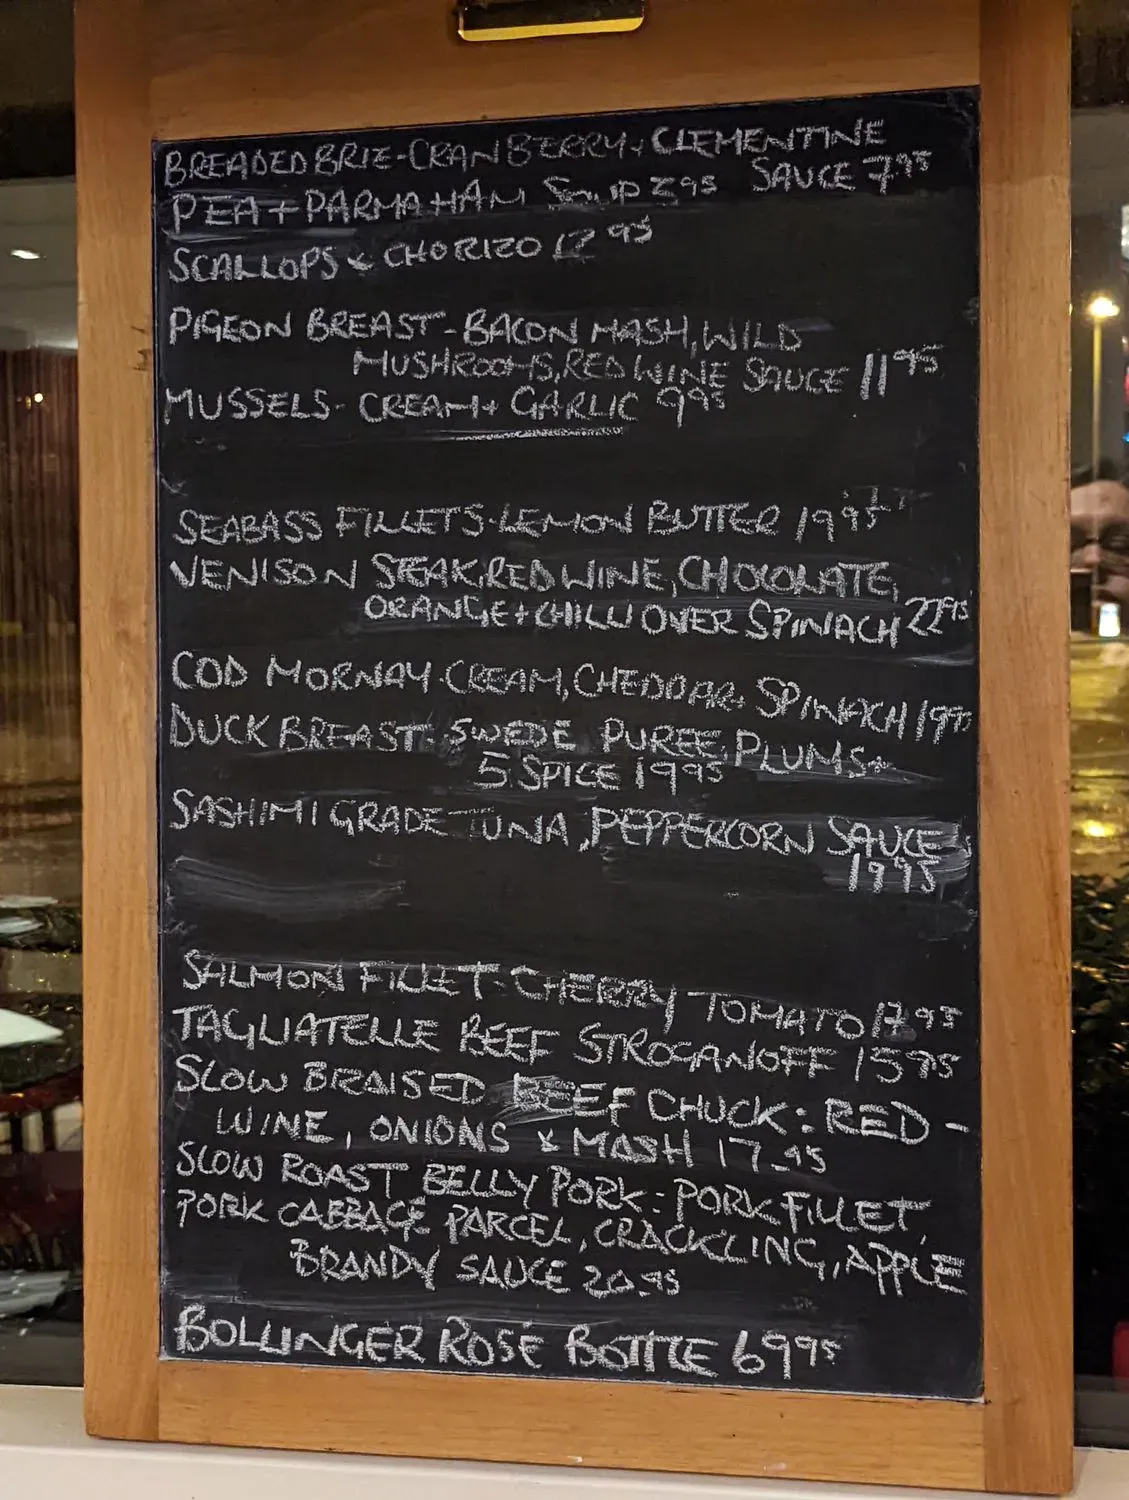 BREADED BRIE-CRANBERRY+CLEMENTINE
SAUCE 7.95
PEA+PARMA HAM SOUP 3.95
SCALLOPS & CHORIZO 12.95
PIGEON BREAST-BACON MASH, WILD
MUSHROOMS, RED WINE SAUCE 11.95
MUSSELS- CREAM+ GARLIC 995
SEABASS FILLETS-LEMON BUTTER 19.95
VENISON STEAK, RED WINE, CHOCOLATE,
ORANGE+CHILLI OVER SPINACH 22.95
COD MORNAY-CREAM, CHEDDAR+ SPINACH
DUCK BREAST-SWEDE PUREE, PLUMS+
5 SPICE 1995
SASHIMI GRADE TUNA, PEPPERCORN SAUCE
19.95
SALMON FILLET-CHERRY TOMATO 17.95
TAGLIATELLE BEEF STROGANOFF 15.95
SLOW BRAISED BEEF CHUCK: RED-
WINE, ONIONS & MASH 17.95
SLOW ROAST BELLY PORK: PORK FILLET,
PORK CABBAGE PARCEL, CRACKLING, APPLE
BRANDY SAUCE 20.95
BOLLINGER ROSÉ BOTTLE 69.95